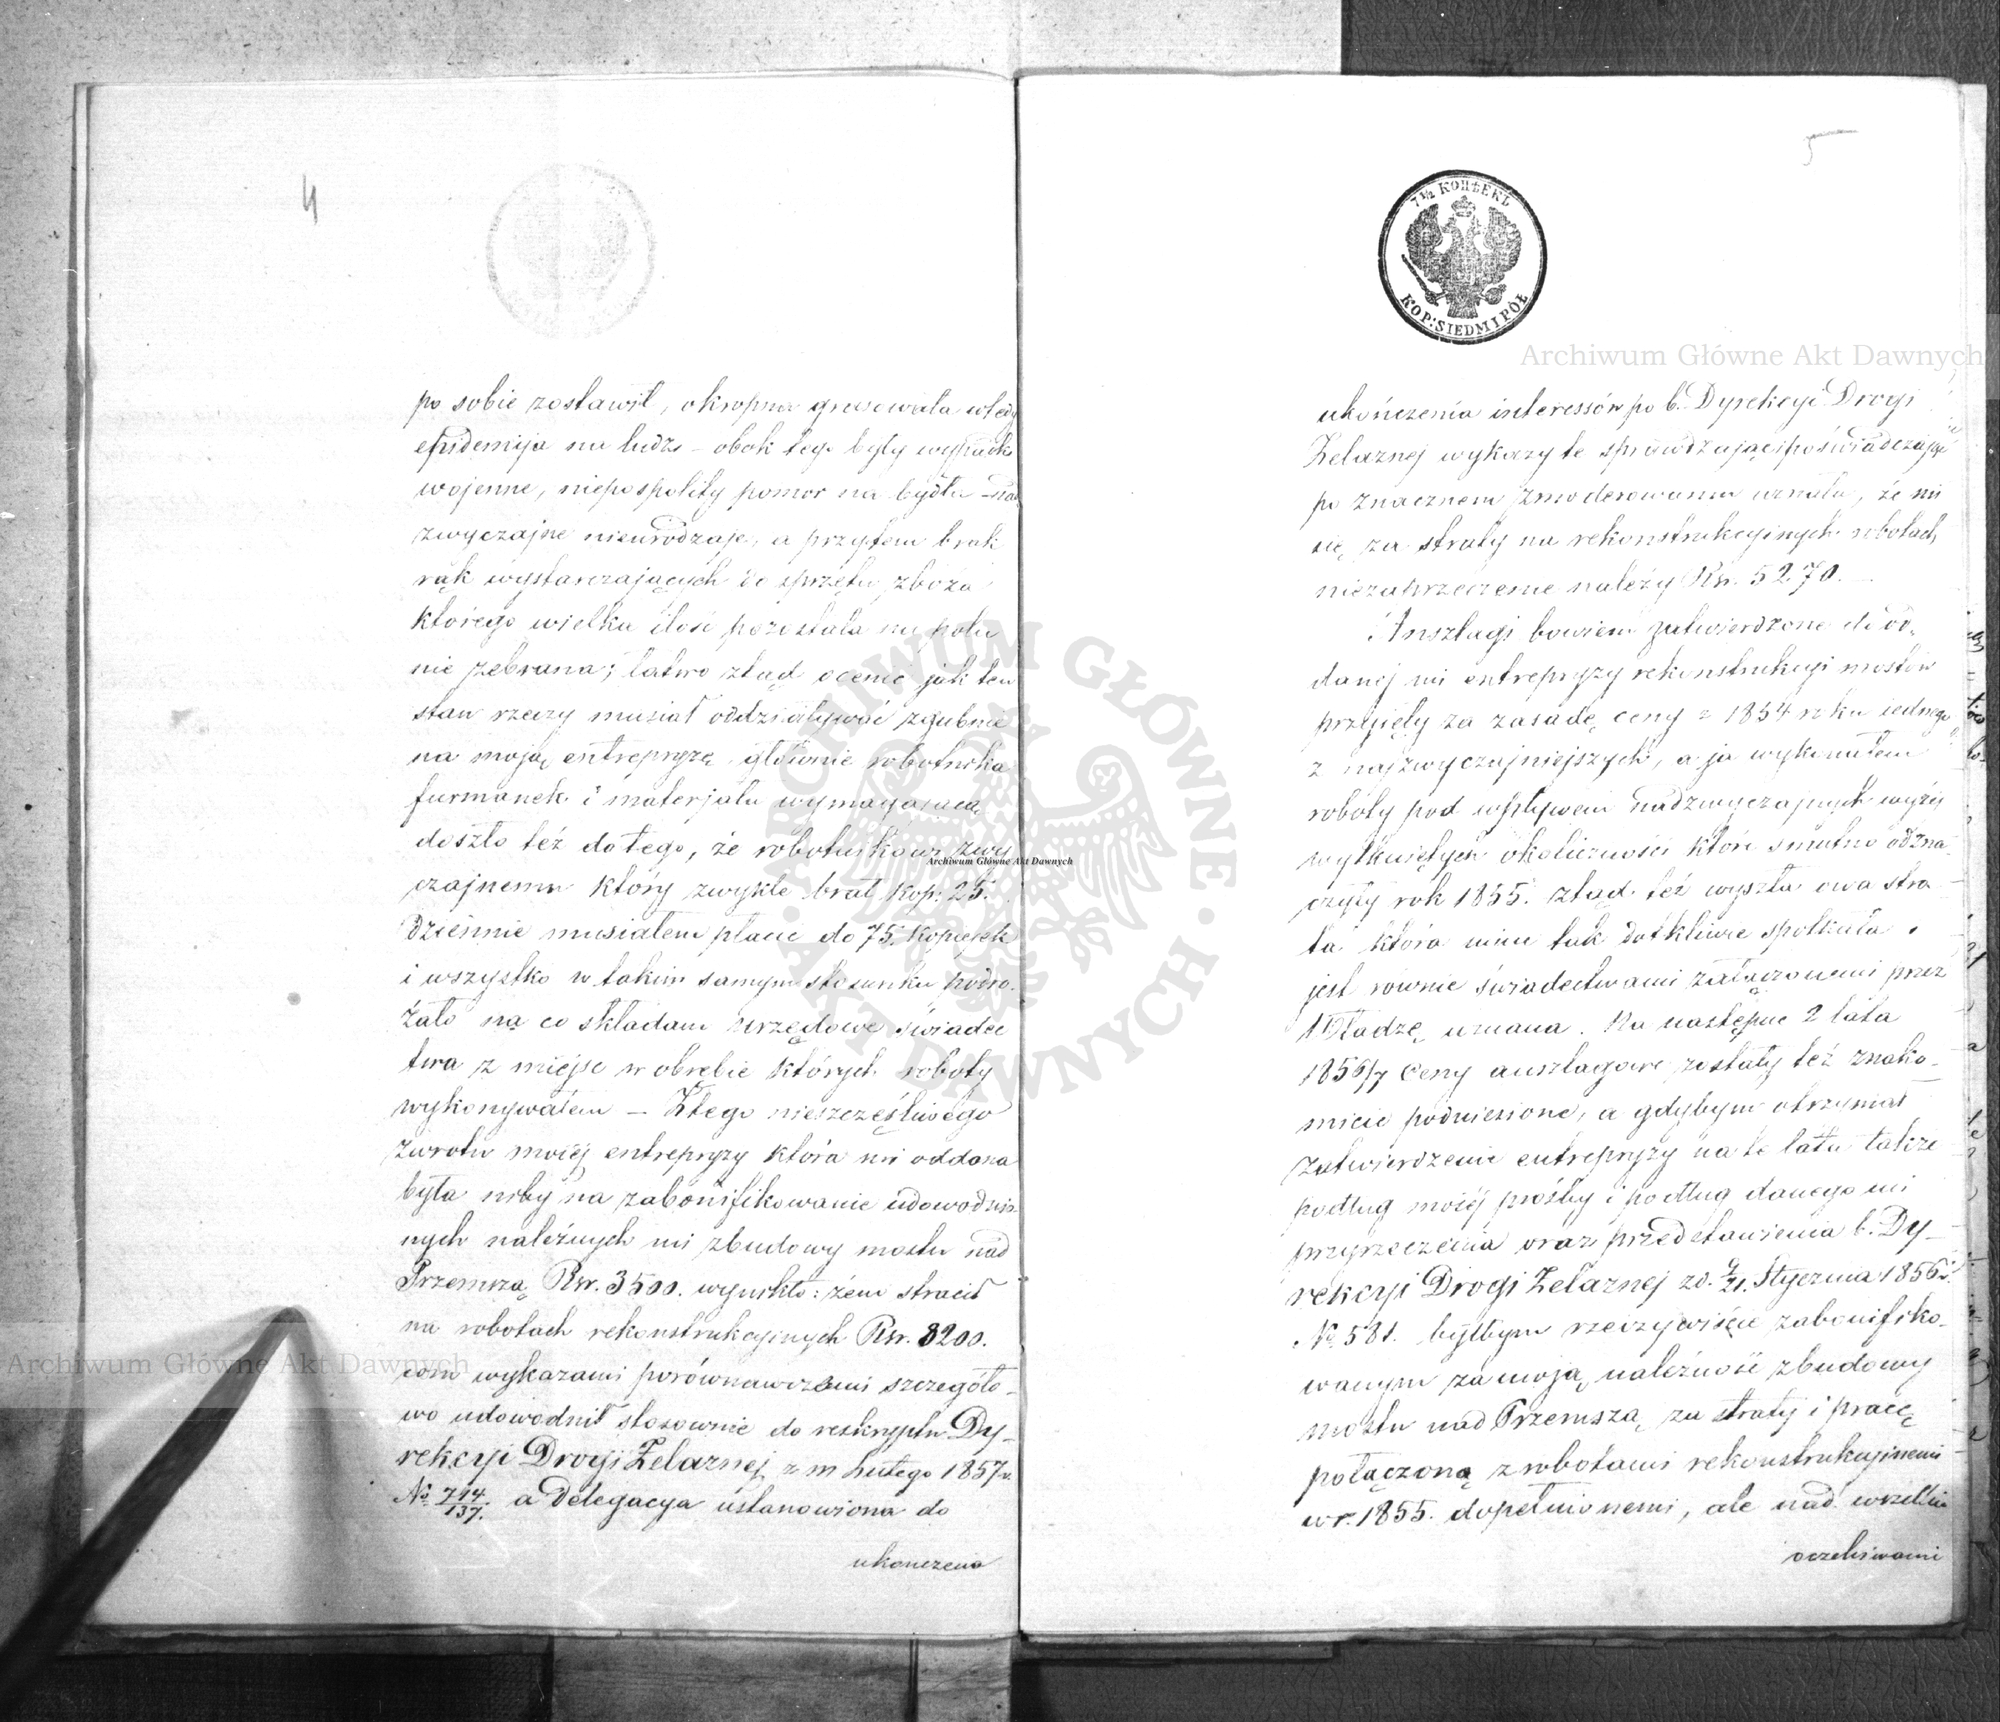 4
po sobie zostawił, okropna grasowała wtedy
epidemija na ludzi – obok tego były wypadki
wojenne, niepospolity pomor na bydło – nad
zwyczajne nieurodzaje, a przytem brak
rąk wystarczających do sprzętu zboża
którego wielka ilość pozostała na polu
nie zebrana; łatwo ztąd ocenić jak ten
stan rzeczy musiał oddziaływać zgubnie
na moją entrepryzę głównie robotnika
furmanek i materjału wymagającą
doszło też do tego, że robotnikowi zwy
czajnemu który zwykle brał kop: 25.
dziennie musiałem płacić do 75. kopiejek
i wszystko w takim samym stosunku podro-
żało na co składam urzędowe świadec
twa z miejsc w obrębie których roboty
wykonywałem – Z tego nieszczęśliwego
zwrotu mojéj entrepryzy która mi oddana
była niby na zabonifikowanie udowodnio-
nych należnych mi z budowy mostu nad
Przemszą Rsr. 3500. wynikło: żem stracił
na robotach rekonstrukcyjnych Rsr. 8200.
com wykazami porównawczemi szczegóło-
wo udowodnił stosownie do reskryptu Dy-
rekcyi Drogi Żelaznej z m Lutego 1857 r.
№ 714/137. a Delegacya ustanowiona do
ukończenia
5
7½ КОПѢЕКЪ
KOP: SIEDM I PÓŁ
ukończenia interessów po b. Dyrekcyi Drogi
Żelaznej wykazy te sprawdzając i poświadczając
po znacznem zmoderowaniu uznała, że mi
się za straty na rekonstrukcyjnych robotach
niezaprzeczenie należy Rsr. 5270.
Anszlagi bowiem zatwierdzone do od-
danej mi entrepryzy rekonstrukcyi mostów
przyjęły za zasadę ceny z 1854 roku jednego
z najzwyczajniejszych, a ja wykonałem
roboty pod wpływem nadzwyczajnych wyżéj
wytkniętych okoliczności które smutno odzna-
czyły rok 1855. ztąd też wyszła owa stra
ta która mnie tak dotkliwie spotkała
jest równie świadectwami załączonemi przez
Władzę uznana. Na następne 2 lata
1856/7 ceny anszlagowe zostały też znako-
micie podniesione, a gdybym otrzymał
zatwierdzenie entrepryzy na te lata także
podług mojéj prośby i podług danego mi
przyrzeczenia oraz przedstawienia b. Dy-
rekcyi Drogi Żelaznej zd. 9/21. Stycznia 1856 r.
№ 581. byłbym rzeczywiście zabonifiko-
wanym za moją należność z budowy
mostu nad Przemszą za straty i pracę
połączoną z robotami rekonstrukcyjnemi
w r. 1855. dopełnionemi, ale nad wszelkie
oczekiwanie
Archiwum Główne Akt Dawnych
Archiwum Główne Akt Dawnych
Archiwum Główne Akt Dawnych
ARCHIWUM GŁÓWNE · AKT DAWNYCH ·